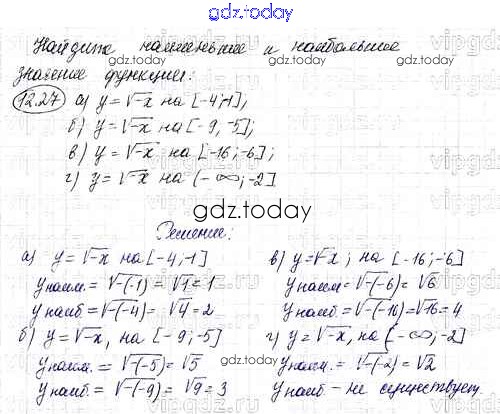 gdz.today
Найдите наименьшее и наибольшее
значение функции:
12.27 а) y = √-x на [-4;-1];
б) y = √-x на [-9, -5];
в) y = √-x на [-16;-6];
г) y = √-x на (-∞;-2]
gdz.today
Решение:
а) y = √-x на [-4;-1]
yнаим. = √-(-1) = √1 = 1
yнаиб = √-(-4) = √4 = 2
б) y = √-x, на [-9;-5]
yнаим. = √-(-5) = √5
yнаиб = √-(-9) = √9 = 3
в) y = √-x; на [-16;-6]
yнаим = √-(-6) = √6
yнаиб = √-(-16) = √16 = 4
г) y = √-x, на (-∞;-2]
yнаим. = √-(-2) = √2
yнаиб - не существует.
gdz.today